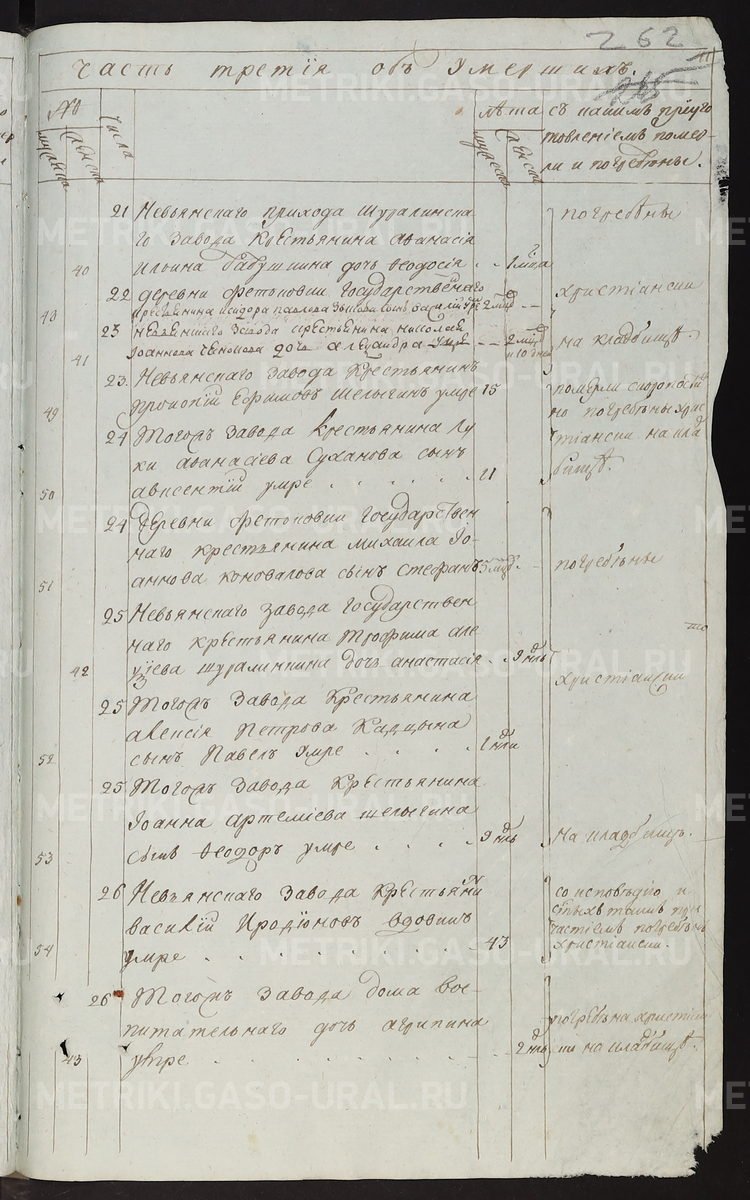 262
Часть третія объ умершихъ.
№
числа
лѣта
съ какимъ пріуго
товленіемъ помер-
ли и погребены.
21 Невьянскаго прихода Шуралинска-
го завода крестьянина Афанасія
40 Ильина Бабушкина дочь Феодосія . . 1 мца
погребены
22 деревни Федьковки государственнаго
48 крестьянина Исидора Павлова сынъ Василій 2 мца
христіански
23 Невьянскаго завода крестьянина Николая
41 Іоаннова дочь Александра умре 2 мца и 10 дней
на кладбищѣ
23. Невьянскаго завода крестьянинъ
49 Прокопій Ефимовъ Шелыгинъ умре 15
померли скоропостиж
но погребены хрис
тіански на клад
бищѣ.
24 Тогожъ завода крестьянина Лу
ки Афанасіева Суханова сынъ
50 Авксентій умре . . . . . 21
24 Деревни Федьковки государствен
наго крестьянина Михаила Іо-
51 аннова Коновалова сынъ Стефанъ 5 мцъ.
погребены
25 Невьянскаго завода государствен
наго крестьянина Трофима Але
42 ксіева Шуралинкина дочь Анастасія . . 9 нль
христіански
25 Тогожъ завода крестьянина
Алексія Петрова Кадцына
52 сынъ Павелъ умре . . . . 1 нли
25 Тогожъ завода крестьянина
Іоанна Артеміева Шелыгина
53 сынъ Феодоръ умре . . . . 9 нль
на кладбищѣ.
26 Невьянскаго завода крестьянинъ
Василій Иродіоновъ Вдовинъ
54 умре . . . . . . . . . 43
со исповѣдію и
с͠тыхъ таинъ при
частіемъ погребенъ
христіански.
26 Тогожъ завода дома вос-
питательнаго дочь Агрипина
43 умре . . . . . . . . . 2 нль
погребена христіан
ски на кладбищѣ.
METRIKI.GASO-URAL.RU